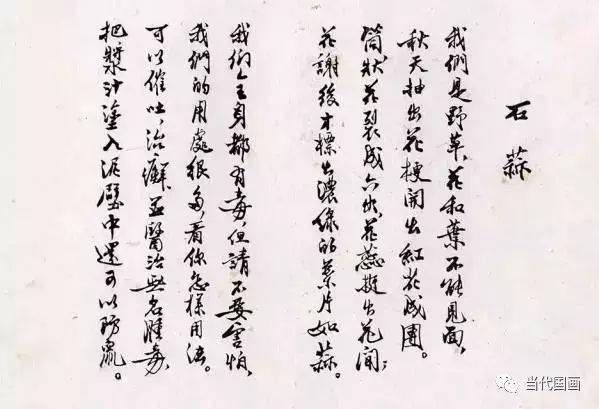 石蒜
我們是野草，花和葉不能見面，
秋天抽出花梗開出紅花成團。
筒狀花裂成六出，花蕊挺出花間；
花謝後才標出濃綠的葉片如蒜。
我們全身都有毒，但請不要害怕，
我們的用處很多，看你怎樣用法。
可以催吐，治癬，並醫治無名腫毒，
把漿汁塗入泥壁中還可以防鼠。
当代国画